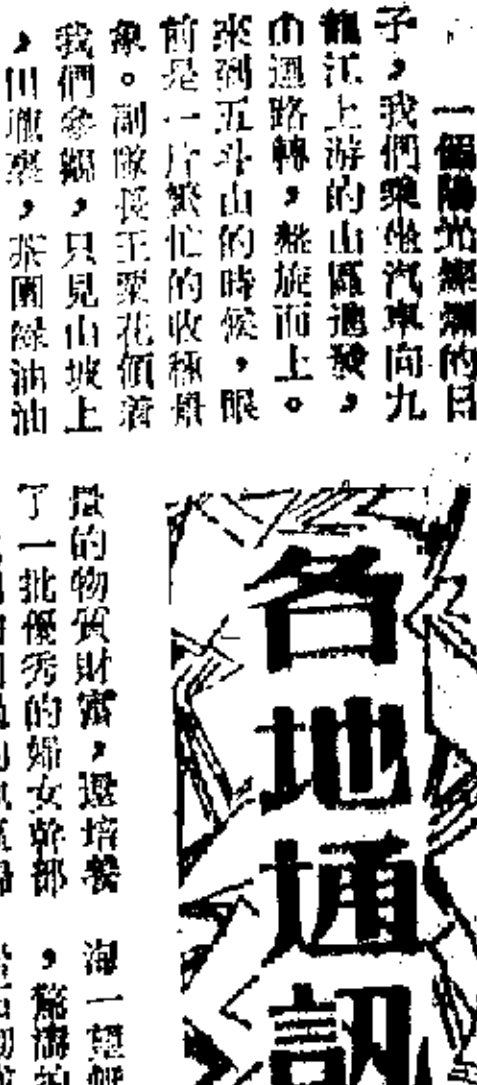 一個陽光燦爛的日
子，我們乘坐汽車向九
龍江上游的山區進發，
山迴路轉，盤旋而上。
來到五斗山的時候，眼
前是一片繁忙的收種景
象。副隊長王粟花領着
我們參觀，只見山坡上
，田壠裏，茶園綠油油
各地通訊
的物質財富，還培養
了一批優秀的婦女幹部
海一望
，驚濤